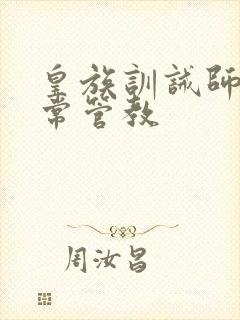 皇族訓誡師
常管教
周汝昌